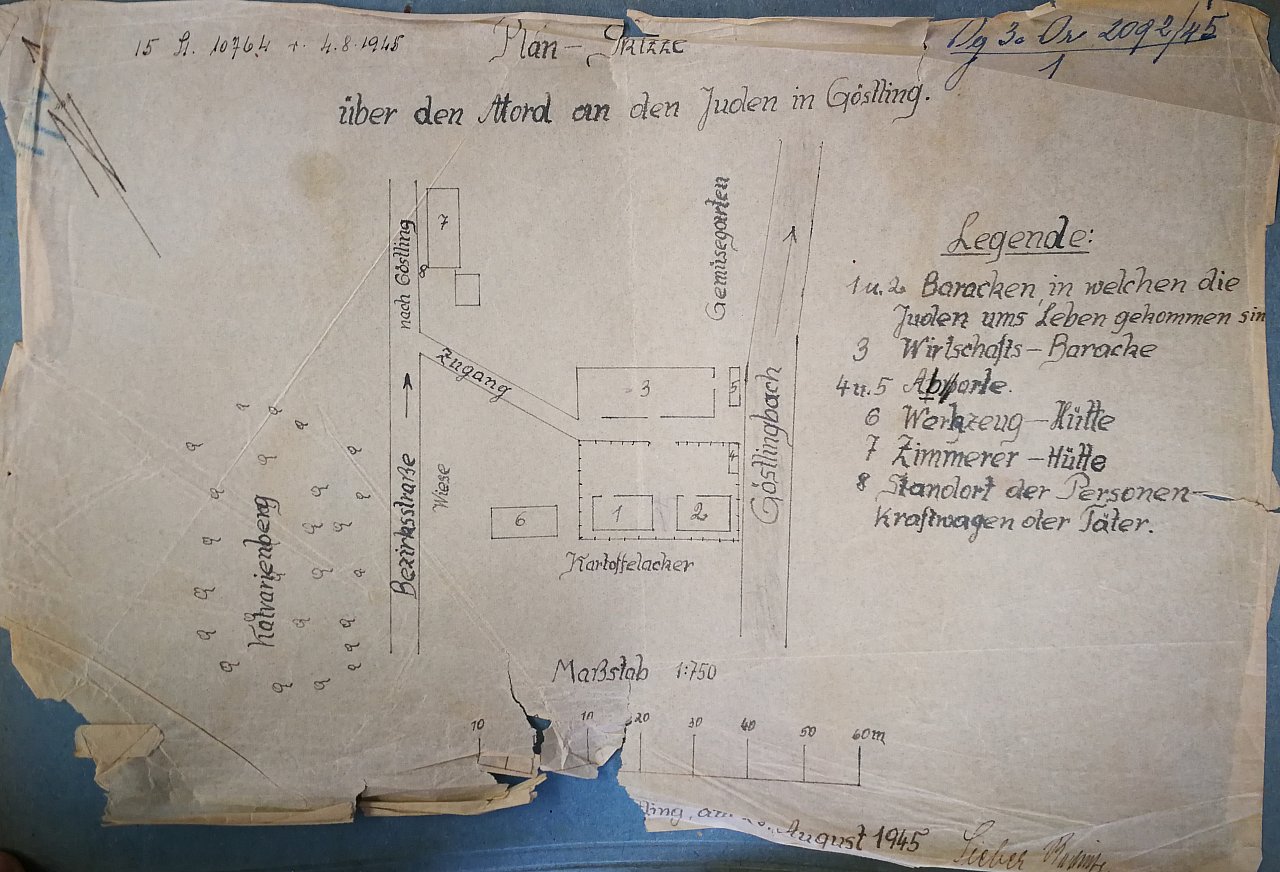 15 St. 10764 + 4.8.1945
Plan-Skizze
Vg 3a Vr 2092/45
1
über den Mord an den Juden in Göstling.
7
8
nach Göstling
Gemüsegarten
Zugang
3
5
4
1
2
6
Göstlingbach
Wiese
Bezirksstraße
Kalvarienberg
Kartoffelacker
Legende:
1 u. 2 Baracken, in welchen die
Juden ums Leben gekommen sin
3 Wirtschafts-Baracke
4 u. 5 Abporte.
6 Werkzeug-Hütte
7 Zimmerer-Hütte
8 Standort der Personen-
kraftwagen der Täter.
Maßstab 1:750
10 10 20 30 40 50 60m
tling, am August 1945